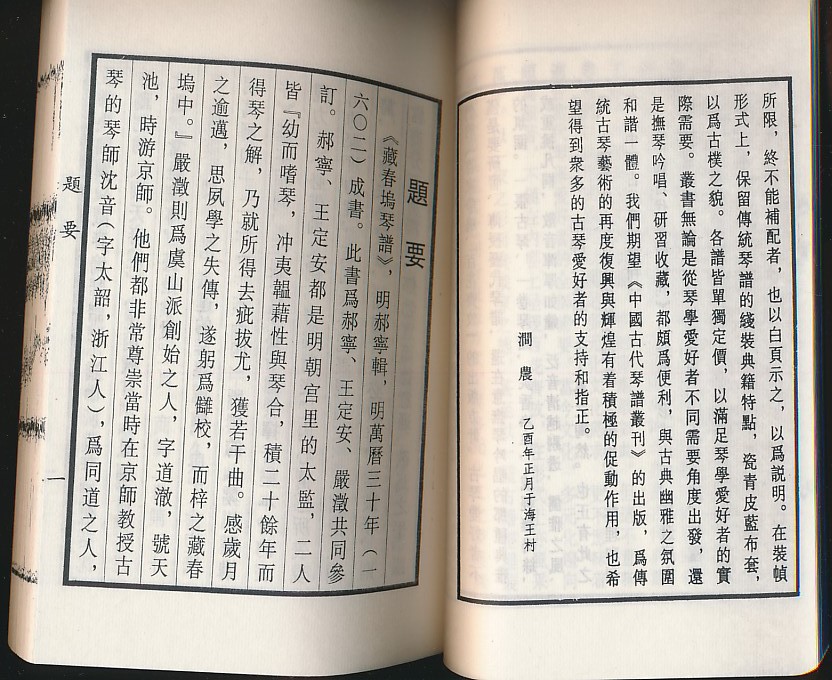 所限，終不能補配者，也以白頁示之，以爲説明。在裝幀
形式上，保留傳統琴譜的綫裝典籍特點，瓷青皮藍布套，
以爲古樸之貌。各譜皆單獨定價，以滿足琴學愛好者的實
際需要。叢書無論是從琴學愛好者不同需要角度出發，還
是撫琴吟唱、研習收藏，都頗爲便利，與古典幽雅之氛圍
和諧一體。我們期望《中國古代琴譜叢刊》的出版，爲傳
統古琴藝術的再度復興與輝煌有着積極的促動作用，也希
望得到衆多的古琴愛好者的支持和指正。
澗農　乙酉年正月于海王村
題要
《藏春塢琴譜》，明郝寧輯，明萬曆三十年（一
六〇二）成書。此書爲郝寧、王定安、嚴澂共同參
訂。郝寧、王定安都是明朝宫里的太監，二人
皆『幼而嗜琴，冲夷韞藉性與琴合，積二十餘年而
得琴之解，乃就所得去疵拔尤，獲若干曲。感歲月
之逾邁，思夙學之失傳，遂躬爲讎校，而梓之藏春
塢中。』嚴澂則爲虞山派創始之人，字道澈，號天
池，時游京師。他們都非常尊崇當時在京師教授古
琴的琴師沈音（字太韶，浙江人），爲同道之人，
題要
一